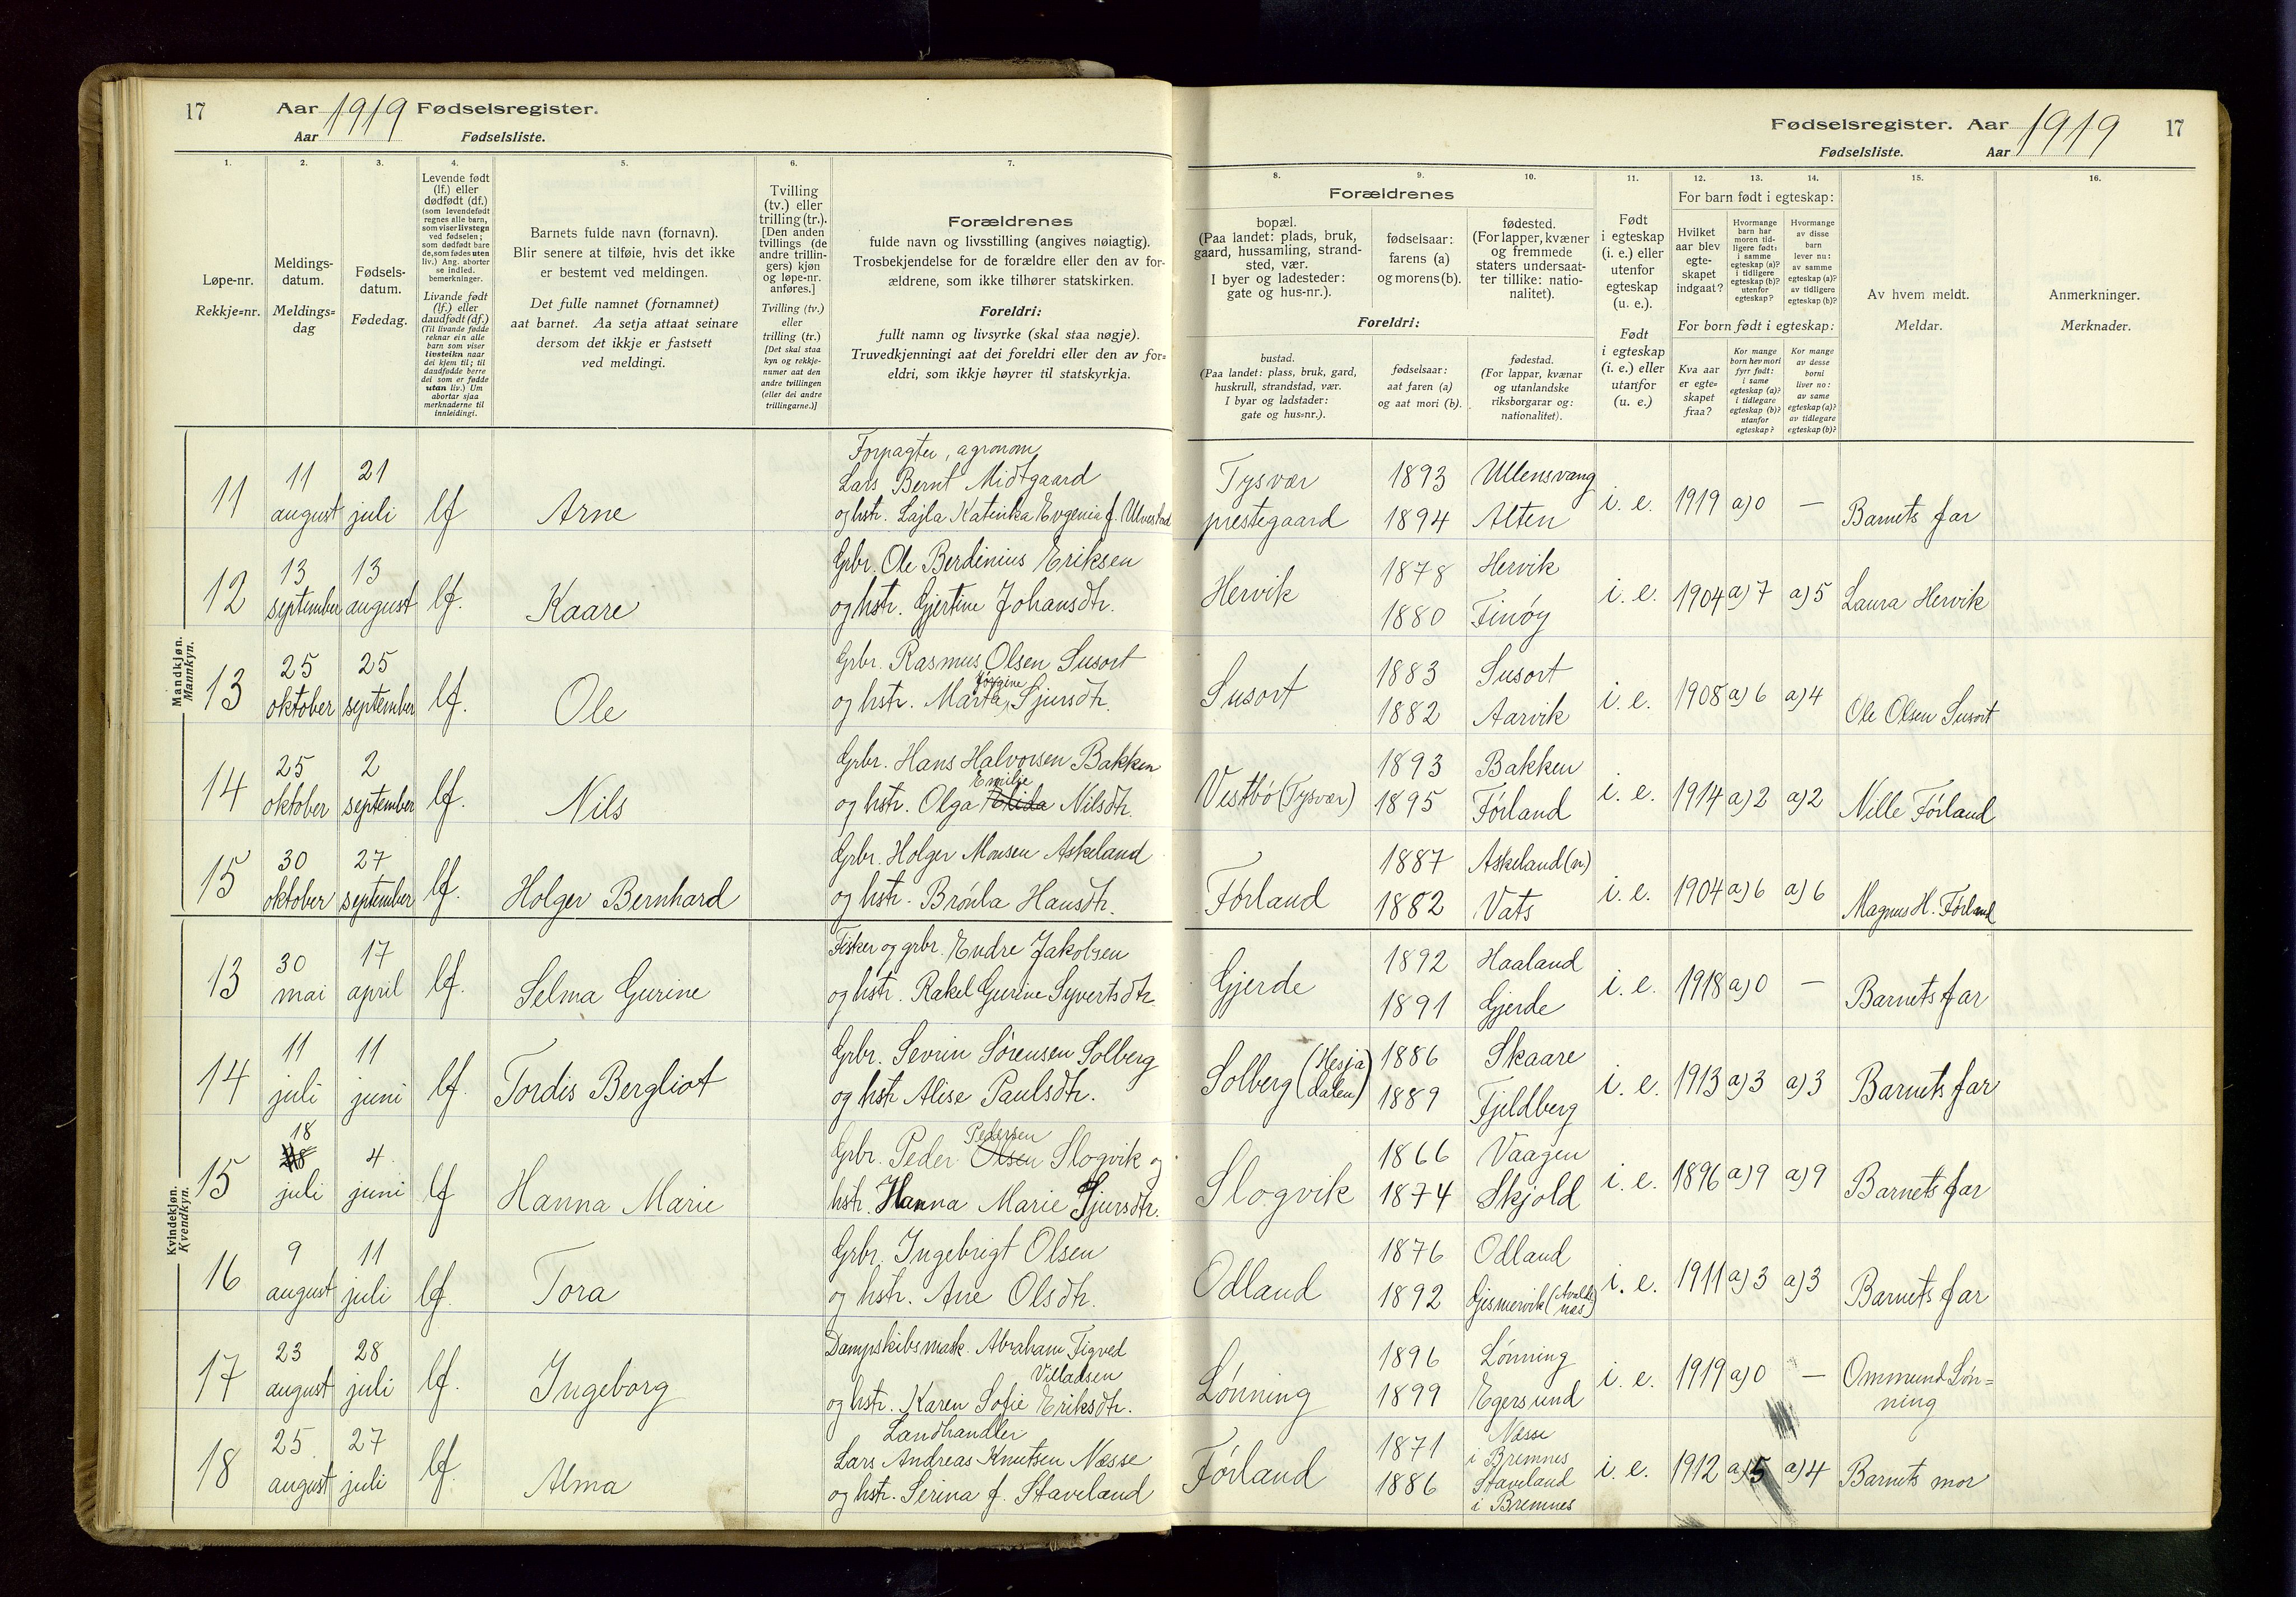 17 Aar 1919 Fødselsregister.
Aar Fødselsliste.
1. 2. 3. 4. 5. 6. 7.
Løpe-nr.
Rekkje=nr.
Meldings-
datum.
Meldings=
dag
Fødsels-
datum.
Fødedag.
Levende født
(lf.) eller
dødfødt (df.)
(som levendefødt
regnes alle barn,
som viser livstegn
ved fødselen;
som dødfødt bare
de, som fødes uten
liv.) Ang. aborter
se indled.
bemerkninger.
Livande født
(lf.) eller
daudfødt (df.)
(Til livande fødde
reknar ein alle
barn som viser
livsteikn naar
dei kjem til; til
daudfødde berre
dei som er fødde
utan liv.) Um
abortar sjaa
merknaderne til
innleidingi.
Barnets fulde navn (fornavn).
Blir senere at tilføie, hvis det ikke
er bestemt ved meldingen.
Det fulle namnet (fornamnet)
aat barnet. Aa setja attaat seinare
dersom det ikkje er fastsett
ved meldingi.
Tvilling
(tv.) eller
trilling (tr.).
[Den anden
tvillings (de
andre trillin-
gers) kjøn
og løpe-nr.
anføres.]
Tvilling (tv.)
eller
trilling (tr.)
[Det skal staa
kyn og rekkje-
numer aat den
andre tvillingen
(eller dei andre
trillingarne.)]
Forældrenes
fulde navn og livsstilling (angives nøiagtig).
Trosbekjendelse for de forældre eller den av for-
ældrene, som ikke tilhører statskirken.
Foreldri:
fullt namn og livsyrke (skal staa nøgje).
Truvedkjenningi aat dei foreldri eller den av for=
eldri, som ikkje høyrer til statskyrkja.
Mandkjøn.
Mannkyn.
11 11 august 21 juli lf Arne
Forpagter, agronom
Lars Bernt Midtgaard
og hstr. Lajla Katinka Evgenia f. Ulvestad
12 13 september 13 august lf. Kaare
Grbr. Ole Berdinius Eriksen
og hstr. Gjertine Johansdtr.
13 25 oktober 25 september lf. Ole
Grbr. Rasmus Olsen Susort
Jørgine
og hstr. Marta Sjursdtr.
14 25 oktober 2 september lf. Nils
Grbr. Hans Halvorsen Bakken
Emilie
og hstr. Olga Nilsdtr.
15 30 oktober 27 september lf. Holger Bernhard
Grbr. Holger Monsen Askeland
og hstr. Brønla Hansdtr.
Kvindekjøn.
Kvendkyn.
13 30 mai 17 april lf. Selma Gurine
Fisker og grbr. Endre Jakobsen
og hstr. Rakel Gurine Syvertsdtr.
14 11 juli 11 juni lf. Tordis Bergliot
Grbr. Sevrin Sørensen Solberg
og hstr Alise Paulsdtr.
15 18 juli 4 juni lf Hanna Marie
Pedersen
Grbr. Peder Olsen Slogvik og
hstr. Hanna Marie Sjursdtr.
16 9 august 11 juli lf. Tora
Grbr. Ingebrigt Olsen
og hstr. Ane Olsdtr.
17 23 august 28 juli lf. Ingeborg
Dampskibsmask. Abraham Tigved
Villadsen
og hstr. Karen Sofie Eriksdtr.
18 25 august 27 juli lf. Alma
Landhandler
Lars Andreas Knutsen Næsse
og hstr. Serina f. Staveland
Fødselsregister. Aar 1919 17
Fødselsliste. Aar
8. 9. 10. 11. 12. 13. 14. 15. 16.
Forældrenes
bopæl.
(Paa landet: plads, bruk,
gaard, hussamling, strand-
sted, vær.
I byer og ladesteder:
gate og hus-nr.).
fødselsaar:
farens (a)
og morens (b).
fødested.
(For lapper, kvæner
og fremmede
staters undersaat-
ter tillike: natio-
nalitet).
Foreldri:
bustad.
(Paa landet: plass, bruk, gard,
huskrull, strandstad, vær.
I byar og ladstader:
gate og hus=nr.).
fødselsaar:
aat faren (a)
og aat mori (b).
fødestad.
(For lappar, kvænar
og utanlandske
riksborgarar og:
nationalitet).
Født
i egteskap
(i. e.) eller
utenfor
egteskap
(u. e.).
Født
i egteskap
(i. e.) eller
utanfor
(u. e.)
For barn født i egteskap:
Hvilket
aar blev
egte-
skapet
indgaat?
Hvormange
barn har
moren tid-
ligere født:
i samme
egteskap (a)?
i tidligere
egteskap (b)?
utenfor
egteskap?
Hvormange
av disse
barn
lever nu:
av samme
egteskap (a)?
av tidligere
egteskap (b)?
For born født i egteskap:
Kva aar
er egte=
skapet
fraa?
Kor mange
born hev mori
fyrr født:
i same
egteskap (a)?
i tidlegare
egteskap (b)?
utanfor
egteskap?
Kor mange
av desse
borni
liver no:
av same
egteskap (a)?
av tidlegare
egteskap (b)?
Av hvem meldt.
Meldar.
Anmerkninger.
Merknader.
Tysvær 1893 Ullensvang
prestegaard 1894 Alten i. e. 1919 a) 0 — Barnets far
1878 Hervik
Hervik 1880 Finøy i. e. 1904 a) 7 a) 5 Laura Hervik
1883 Susort
Susort 1882 Aarvik i. e. 1908 a) 6 a) 4 Ole Olsen Susort
1893 Bakken
Vestbø (Tysvær) 1895 Førland i. e. 1914 a) 2 a) 2 Nille Førland
1887 Askeland (n.)
Førland 1882 Vats i. e. 1904 a) 6 a) 6 Magnus H. Førland
1892 Haaland
Gjerde 1891 Gjerde i. e. 1918 a) 0 — Barnets far
1886 Skaare
Solberg (Hesjadalen) 1889 Fjeldberg i. e. 1913 a) 3 a) 3 Barnets far
1866 Vaagen
Slogvik 1874 Skjold i. e. 1896 a) 9 a) 9 Barnets far
1876 Odland
Odland 1892 Gismervik (Avaldsnes) i. e. 1911 a) 3 a) 3 Barnets far
1896 Lønning
Lønning 1899 Egersund i. e. 1919 a) 0 — Ommund Løn=
ning
1871 Næsse
i Bremnes
Førland 1886 Staveland
i Bremnes i. e. 1912 a) 5 a) 4 Barnets mor